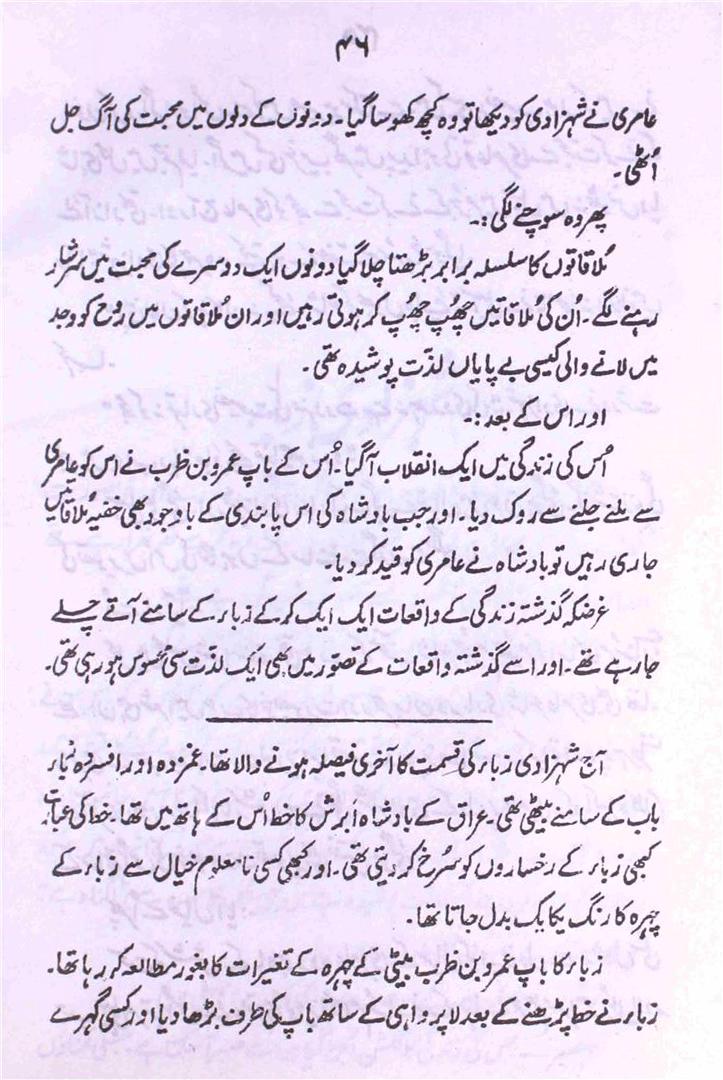 ۴۶
عامری نے شہزادی کو دیکھا تو وہ کچھ کھو سا گیا۔ دونوں کے دلوں میں محبت کی آگ جل
اُٹھی۔
پھر وہ سوچنے لگی:۔
مُلاقاتوں کا سلسلہ برابر بڑھتا چلا گیا دونوں ایک دوسرے کی محبت میں سرشار
رہنے لگے۔ اُن کی مُلاقاتیں چھُپ چھُپ کر ہوتی رہیں اور ان مُلاقاتوں میں روح کو وجد
میں لانے والی کیسی بے پایاں لذّت پوشیدہ تھی۔
اور اس کے بعد:۔
اُس کی زندگی میں ایک انقلاب آگیا۔ اُس کے باپ عمرو بن ظرب نے اس کو عامری
سے ملنے جلنے سے روک دیا۔ اور جب بادشاہ کی اس پابندی کے باوجود بھی خفیہ مُلاقاتیں
جاری رہیں تو بادشاہ نے عامری کو قید کر دیا۔
غرضکہ گذشتہ زندگی کے واقعات ایک ایک کر کے زباء کے سامنے آتے چلے
جارہے تھے۔ اور اسے گذشتہ واقعات کے تصوّر میں بھی ایک لذّت سی محسوس ہو رہی تھی۔
آج شہزادی زباء کی قسمت کا آخری فیصلہ ہونے والا تھا۔ غمزدہ اور افسردہ زباء
باپ کے سامنے بیٹھی تھی۔ عراق کے بادشاہ ابرش کا خط اُس کے ہاتھ میں تھا۔ خط کی عبارت
کبھی زباء کے رخساروں کو سُرخ کر دیتی تھی۔ اور کبھی کسی نا معلوم خیال سے زباء کے
چہرہ کا رنگ یکایک بدل جاتا تھا۔
زباء کا باپ عمرو بن ظرب بیٹی کے چہرہ کے تغیرات کا بغور مطالعہ کر رہا تھا۔
زباء نے خط پڑھنے کے بعد لاپرواہی کے ساتھ باپ کی طرف بڑھا دیا اور کسی گہرے